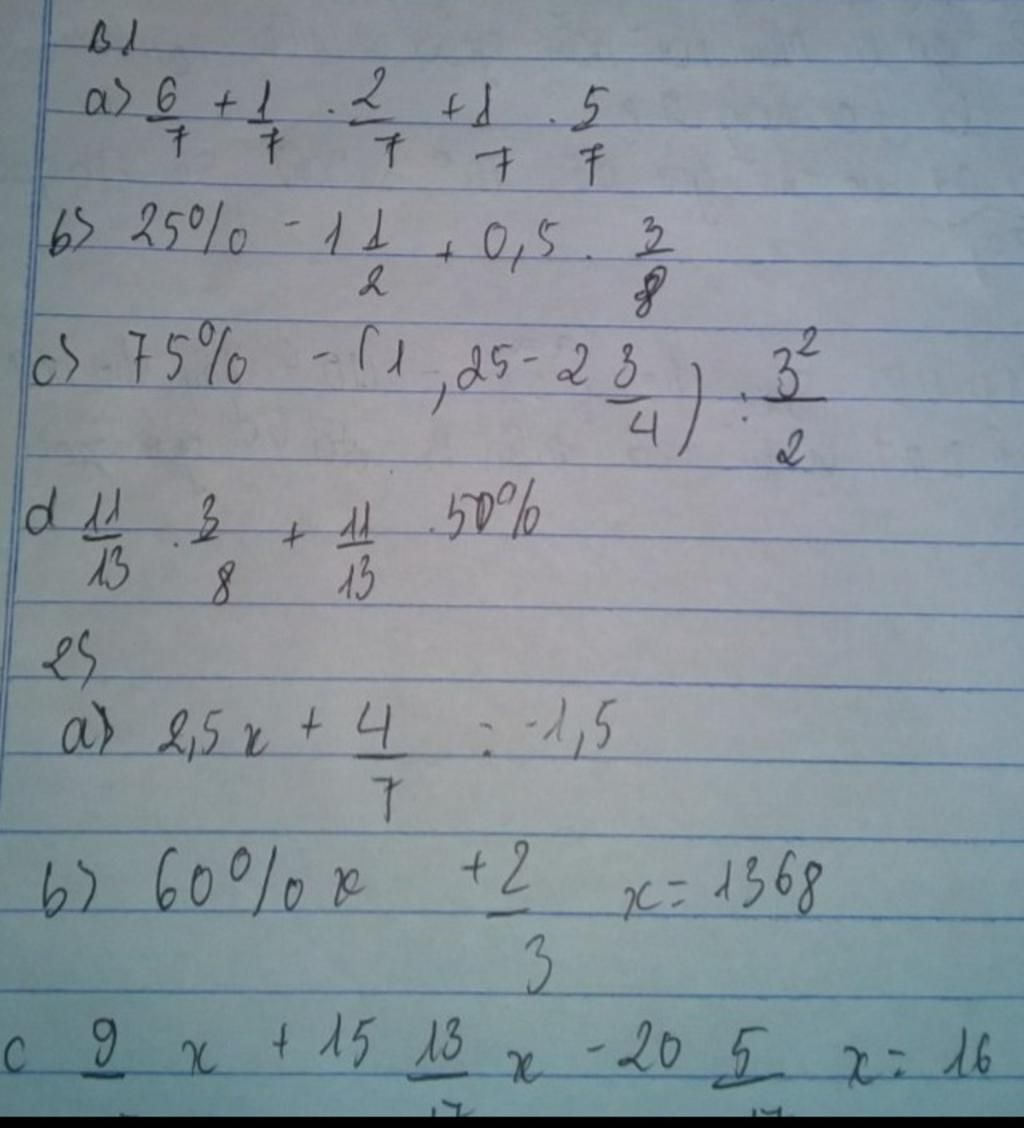 B1
a) 6/7 + 1/7 . 2/7 + 1/7 . 5/7
b) 25% - 1 1/2 + 0,5 . 3/8
c) 75% - (1,25 - 2 3/4) : 3²/2
d 11/13 . 3/8 + 11/13 . 50%
2)
a) 2,5x + 4/7 = -1,5
b) 60% x + 2/3 x = 1368
c 9 x + 15 13/17 x - 20 5/17 x = 16